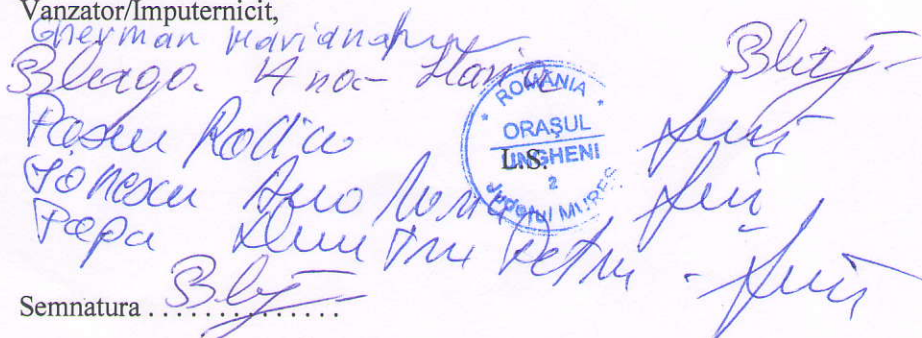 Vanzator/Imputernicit,
Gherman Mariana
Bleaga Ana-Maria
Pascu Rodica
Ionescu Ana
Popa Dumitru Petru
ROMÂNIA
ORAȘUL
UNGHENI
2
Județul MUREȘ
L.S.
Semnatura ..............